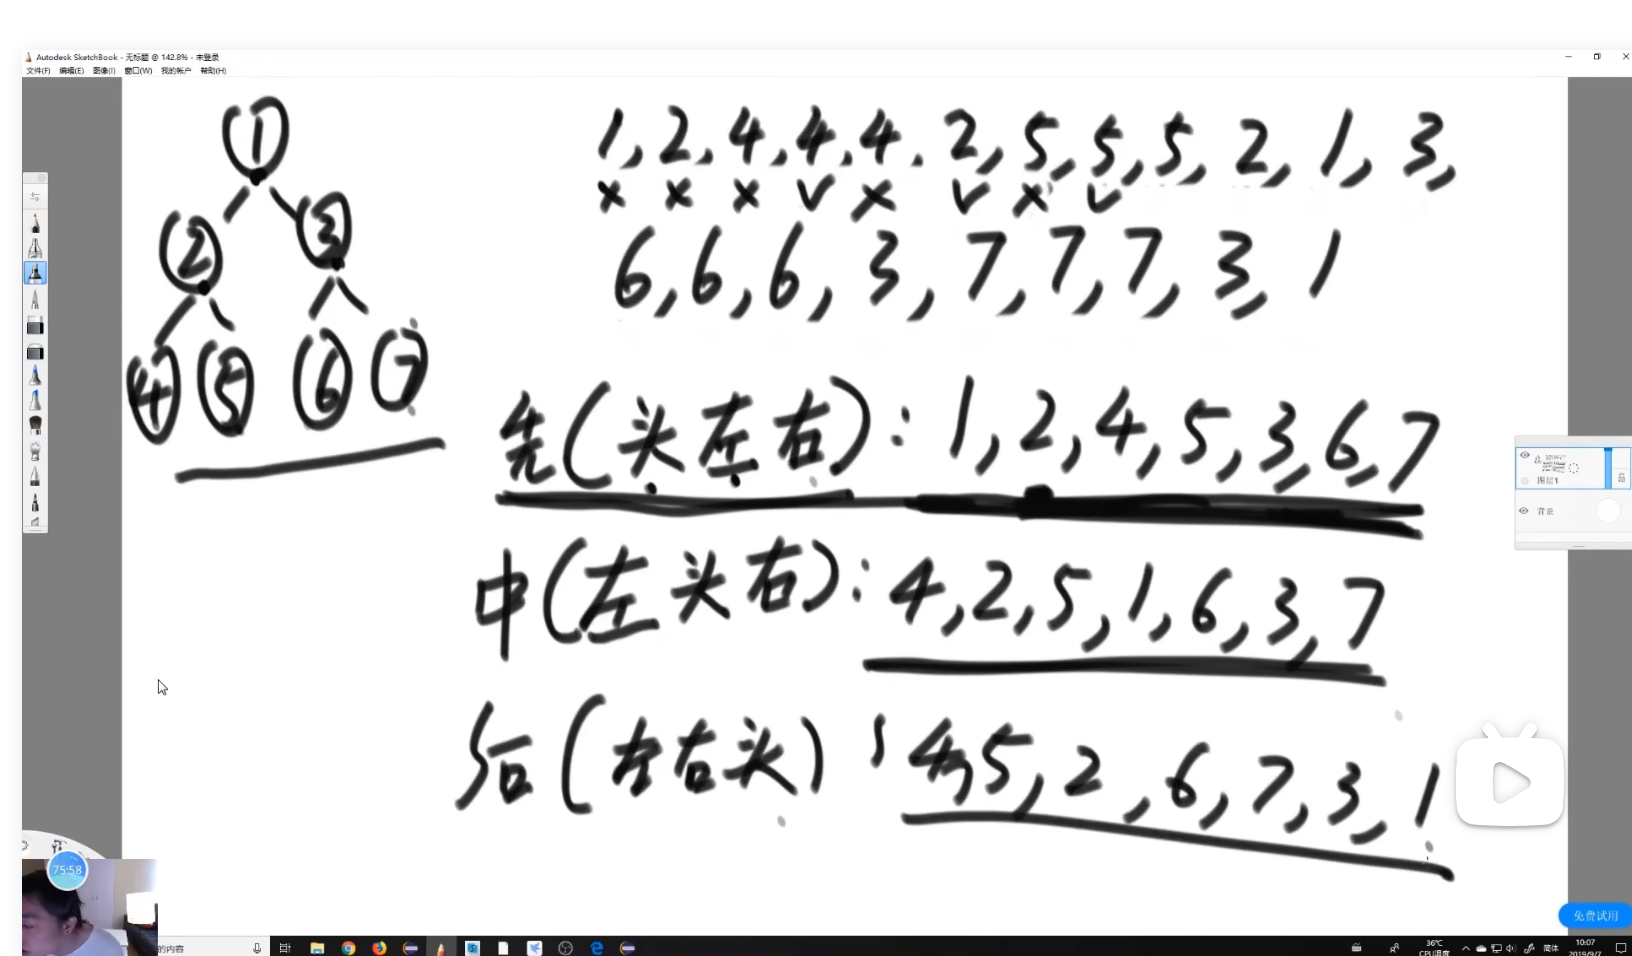 Autodesk SketchBook - 无标题 @ 142.8% - 未登录
文件(F) 编辑(E) 图像(I) 窗口(W) 我的帐户 帮助(H)
1
2 3
4 5 6 7
1,2,4,4,4,2,5,5,5,2,1,3,
x x x v x v x v
6,6,6,3,7,7,7,3,1
先(头左右):1,2,4,5,3,6,7
中(左头右):4,2,5,1,6,3,7
后(左右头):4,5,2,6,7,3,1
图层1
背景
75:58
免费试用
的内容
36℃
CPU温度
简体
10:07
2019/9/7